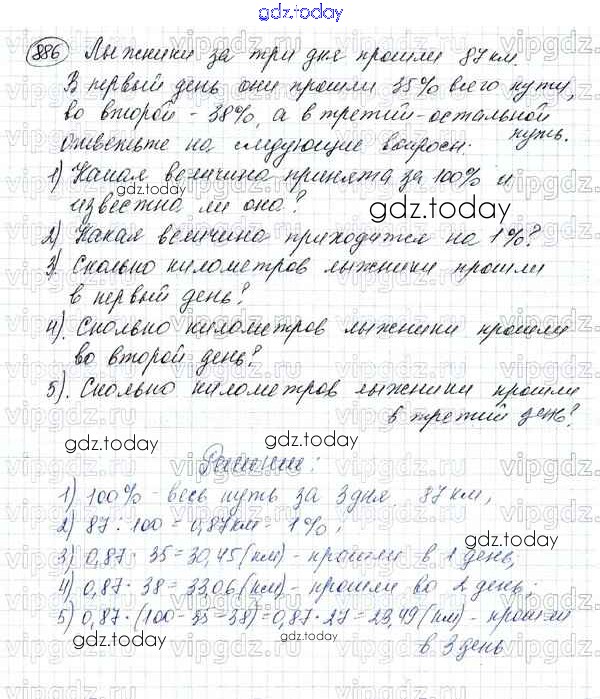 gdz.today
886 Лыжники за три дня прошли 87 км.
В первый день они прошли 35% всего пути,
во второй - 38%, а в третий - остальной
путь.
ответьте на следующие вопросы.
1) Какая величина принята за 100% и
известна ли она?
2) Какая величина приходится на 1%?
3) Сколько километров лыжники прошли
в первый день?
4). Сколько километров лыжники прошли
во второй день?
5). Сколько километров лыжники прошли
в третий день?
Решение:
1) 100% - весь путь за 3 дня 87 км,
2) 87 : 100 = 0,87 км - 1%;
3) 0,87 · 35 = 30,45 (км) - прошли в 1 день,
4) 0,87 · 38 = 33,06 (км) - прошли во 2 день;
5) 0,87 · (100 - 35 - 38) = 0,87 · 27 = 23,49 (км) - прошли
в 3 день
gdz.today
gdz.today
gdz.today
gdz.today
gdz.today
gdz.today
gdz.today
gdz.today